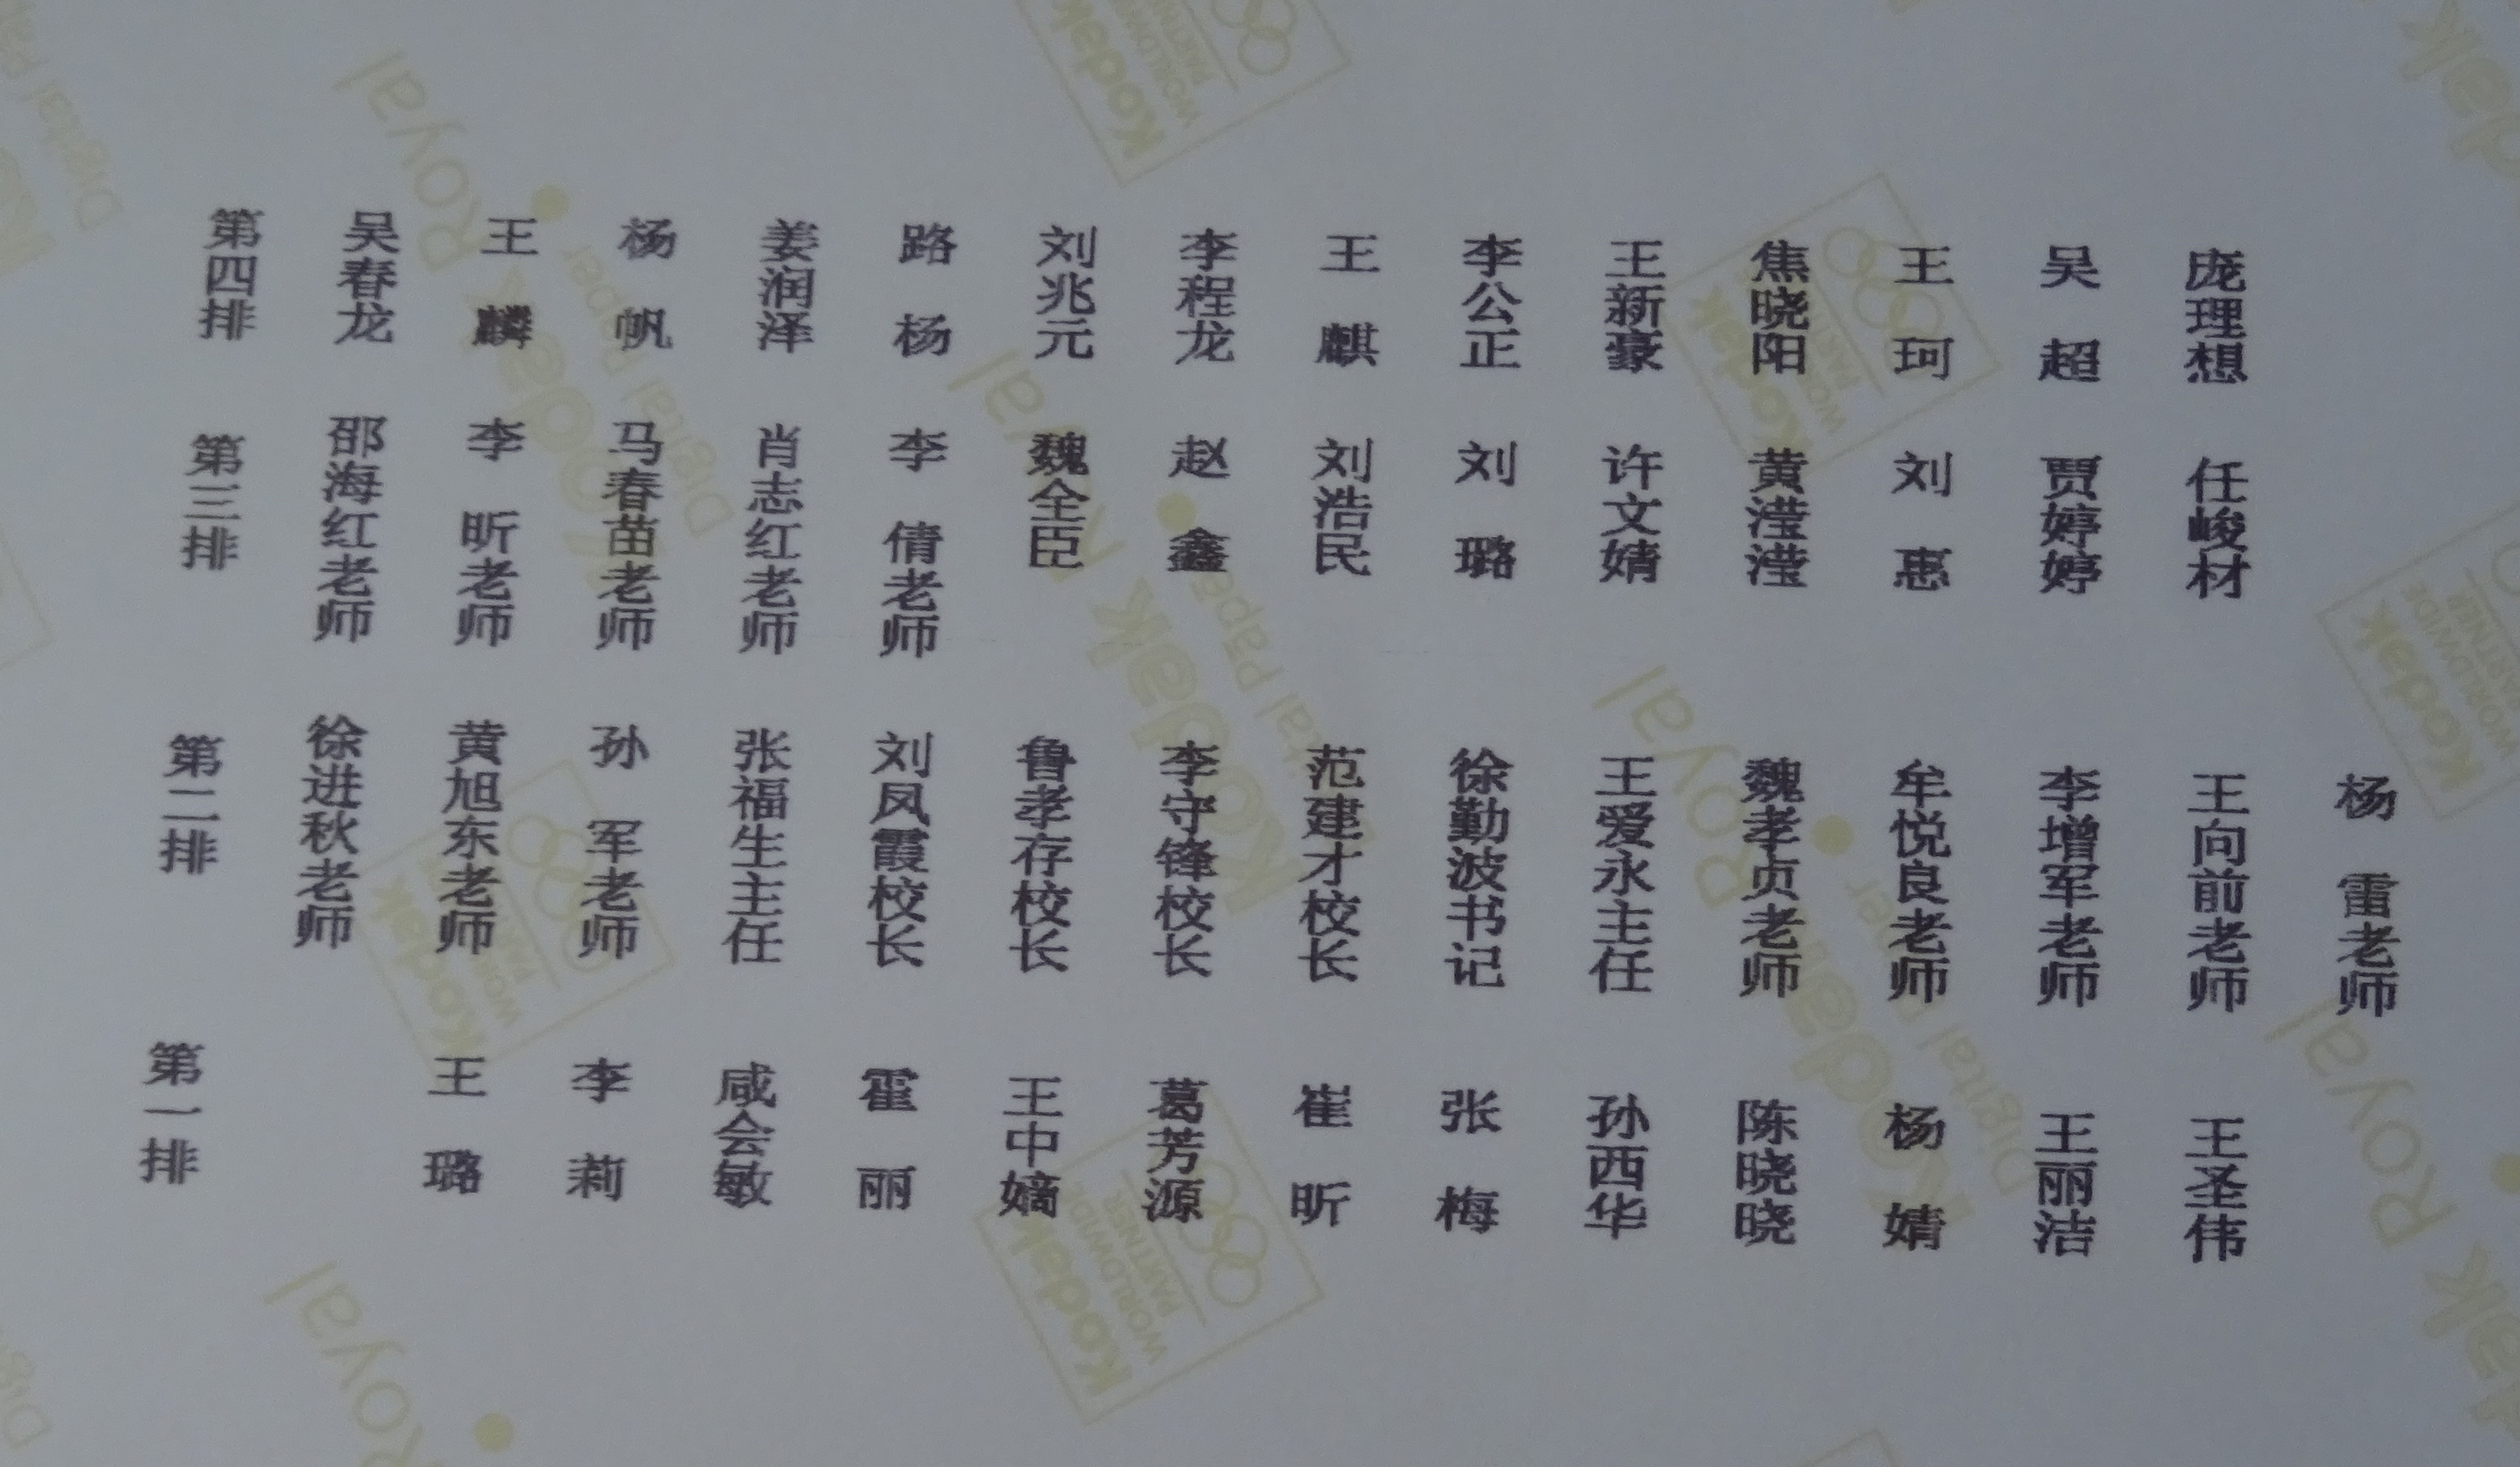 第四排 吴春龙 王麟 杨帆 姜润泽 路杨 刘兆元 李程龙 王麒 李公正 王新豪 焦晓阳 王珂 吴超 庞理想
第三排 邵海红老师 李昕老师 马春苗老师 肖志红老师 李倩老师 魏全臣 赵鑫 刘浩民 刘璐 许文婧 黄滢滢 刘惠 贾婷婷 任峻材
第二排 徐进秋老师 黄旭东老师 孙军老师 张福生主任 刘凤霞校长 鲁孝存校长 李守锋校长 范建才校长 徐勤波书记 王爱永主任 魏孝贞老师 牟悦良老师 李增军老师 王向前老师 杨雷老师
第一排 王璐 李莉 咸会敏 霍丽 王中嫡 葛芳源 崔昕 张梅 孙西华 陈晓晓 杨婧 王丽洁 王圣伟
Kodak
WORLDWIDE
PARTNER
Kodak Royal
Digital Paper